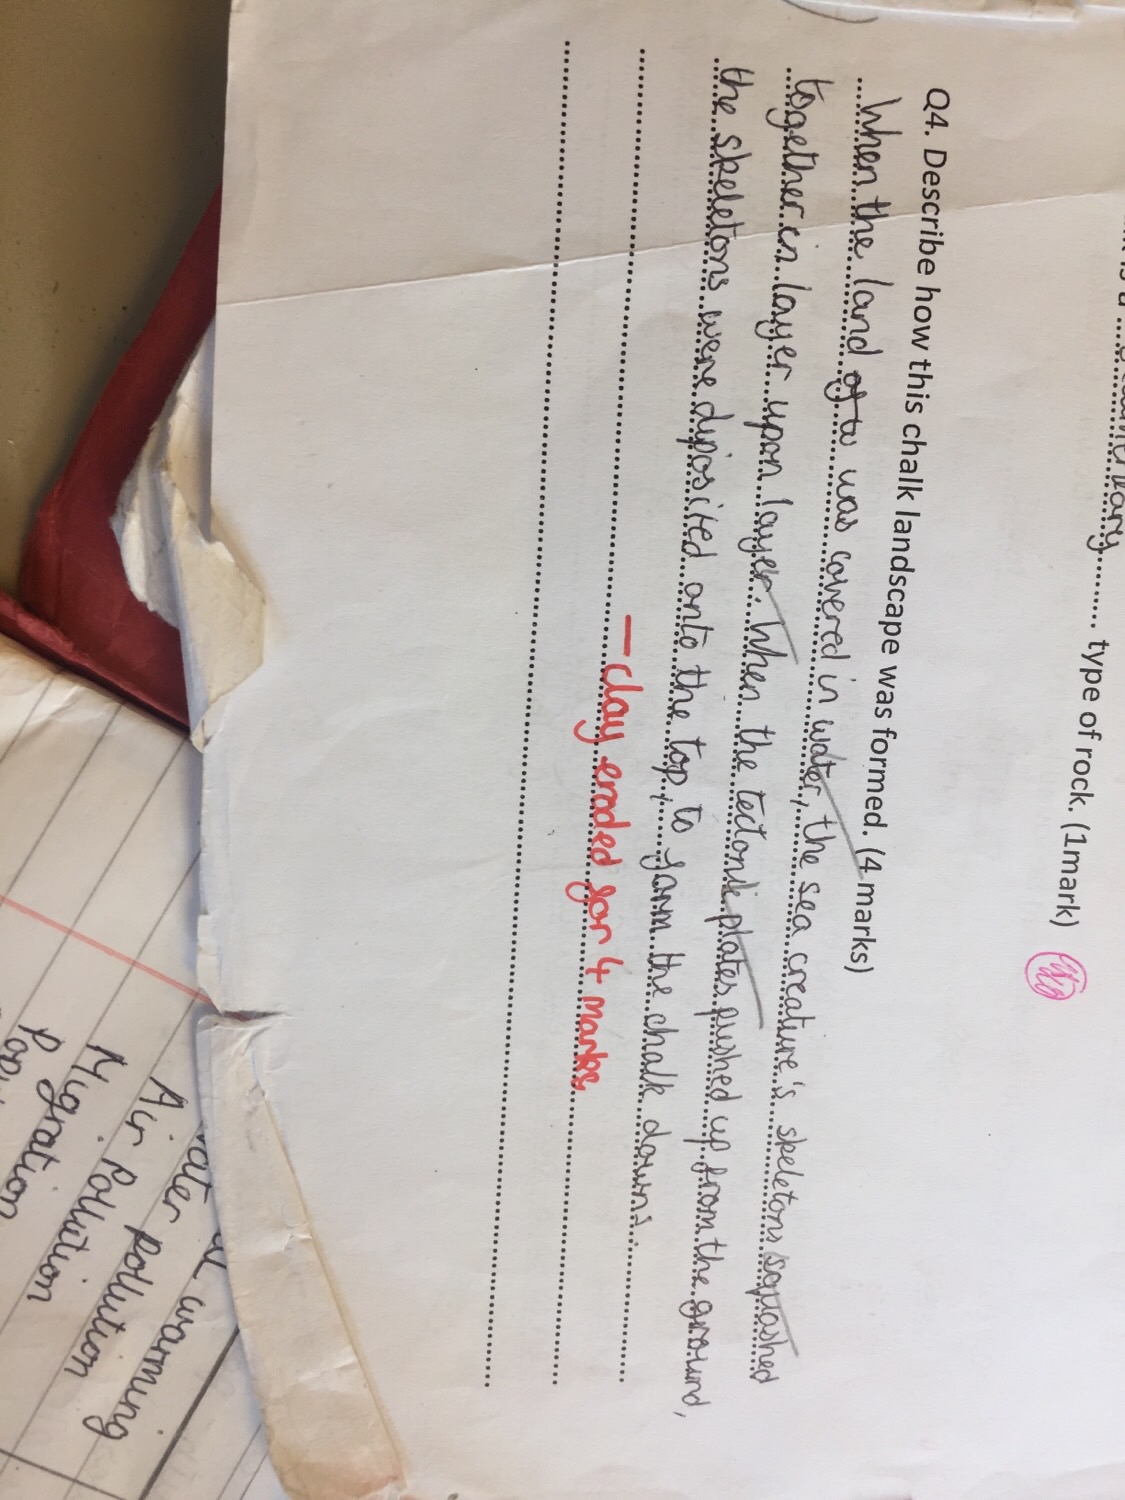 type of rock. (1mark)
Q4. Describe how this chalk landscape was formed. (4 marks)
When the land was covered in water, the sea creature's skeletons squashed
together in layer upon layer. When the tectonic plates pushed up from the ground,
the skeletons were diposited onto the top, to form the chalk downs.
— clay eroded for 4 marks
warming
water pollution
Air Pollution
Migration